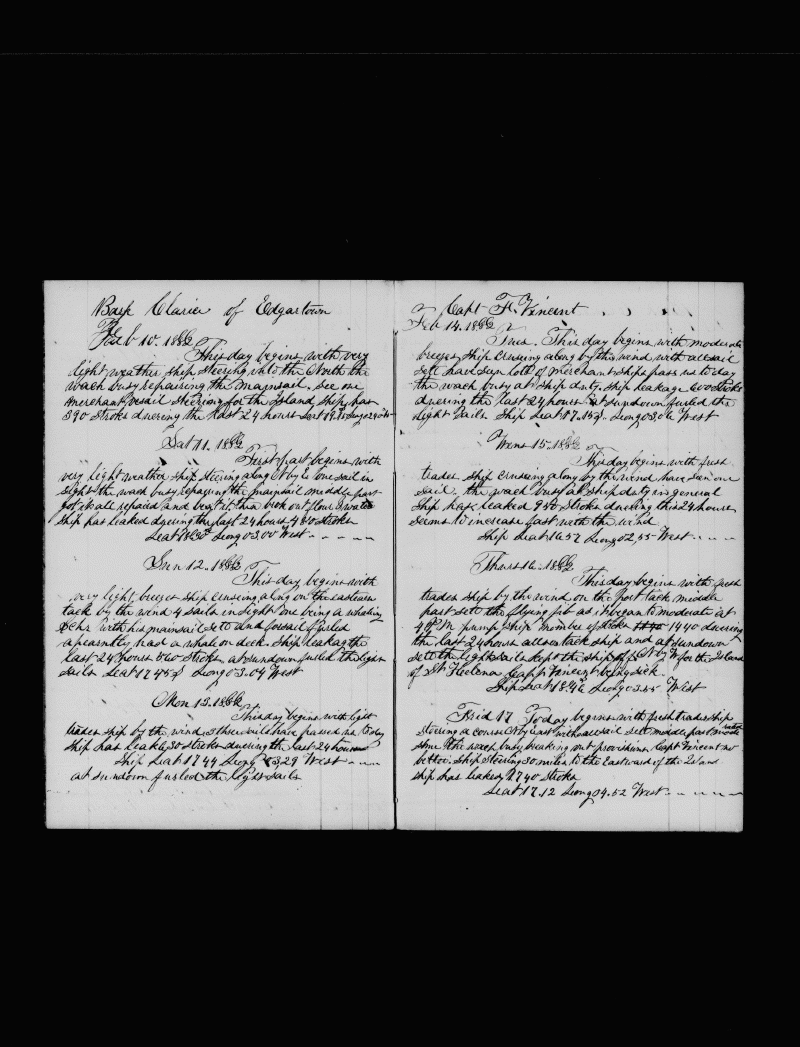 Bark Clarice of Edgartown
Feb 10. 1882
This day begins with very
light weather ship steering into the North the
wach busy repairing the mainsail, see one
merchant vesail steering for the Island Ship has
390 Stroks duering the last 24 hours
Sat 11. 1882
First part begins with
very light weather ship steering along N by E one sail in
sight the wach busy repairing the mainsail middle part
got it all repaired and bent it then brok out flour & water
Ship has leaked duering the last 24 hours 480 Stroks
Long 03,00 West
Sun 12. 1882
This day begins with
very light breezes ship cruising along on the eastern
tack by the wind 4 sails in sight one being a whaling
Schr with his mainsail sett and forsail furled
apearntly had a whale on deck. Ship leakag the
last 24 hours 860 Stroks at sundown furled the light
sails Leat 17 45 S Long 03.04 West
Mon 13. 1882
This day begins with light
trades ship by the wind three sails have passed us to day
Ship has leaked Stroks duering the last 24 hours
Ship Leat 17 44 Long 03,29 West
at sundown furled the light sails
Capt F. Vincent
Feb 14. 1882
Tues. This day begins with moderate
breezes ship cruising along by the wind with all sail
sett have seen lotts of merchant ships pass us to day
the wach busy at ship duty. ship leakage 600 stroks
duering the last 24 hours at sundown furled the
light sails Ship Leat 17.15 S. Long 03,06 West
Wens 15. 1882
This day begins with fresh
trades ship cruising along by the wind have seen one
sail. the wach busy at ship duty in general
Ship has leaked 980 Stroks duering this 24 hours
seems to increase fast with the wind
Ship Leat 16 57 Long 02,55 West
Thurs 16. 1882
This day begins with fresh
trades ship by the wind on the Port tack middle
part sett the flying jib as it began to moderate at
4 PM pump ship number of stroks 1440 duering
the last 24 hours all on tack ship and at sundown
sett the light sails kept the ship off N by W for the Island
of St Helena Capp Vincent being sick.
Ship Leat Long 03.55 West
Frid 17 To day begins with fresh trades ship
steering a course N by west with all sail sett middle part
some the wach busy breaking out provisions, Capt Vincent no
better. Ship steering 30 miles to the Eastward of the Island
ship has leaked 1740 Stroks
Leat 17.12 Long 04.52 West